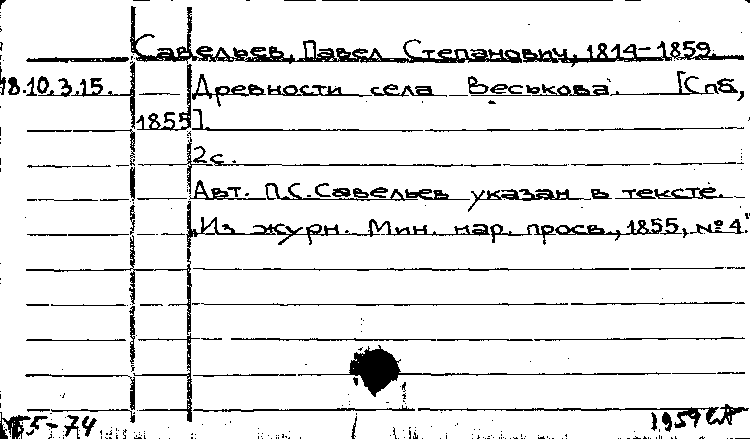 Савельев, Павел Степанович, 1814-1859.
18.10.3.15. Древности села Веськова. [Спб,
1855].
2с.
Авт. П.С.Савельев указан в тексте.
„Из журн. Мин. нар. просв., 1855, №4."
55-74 1959